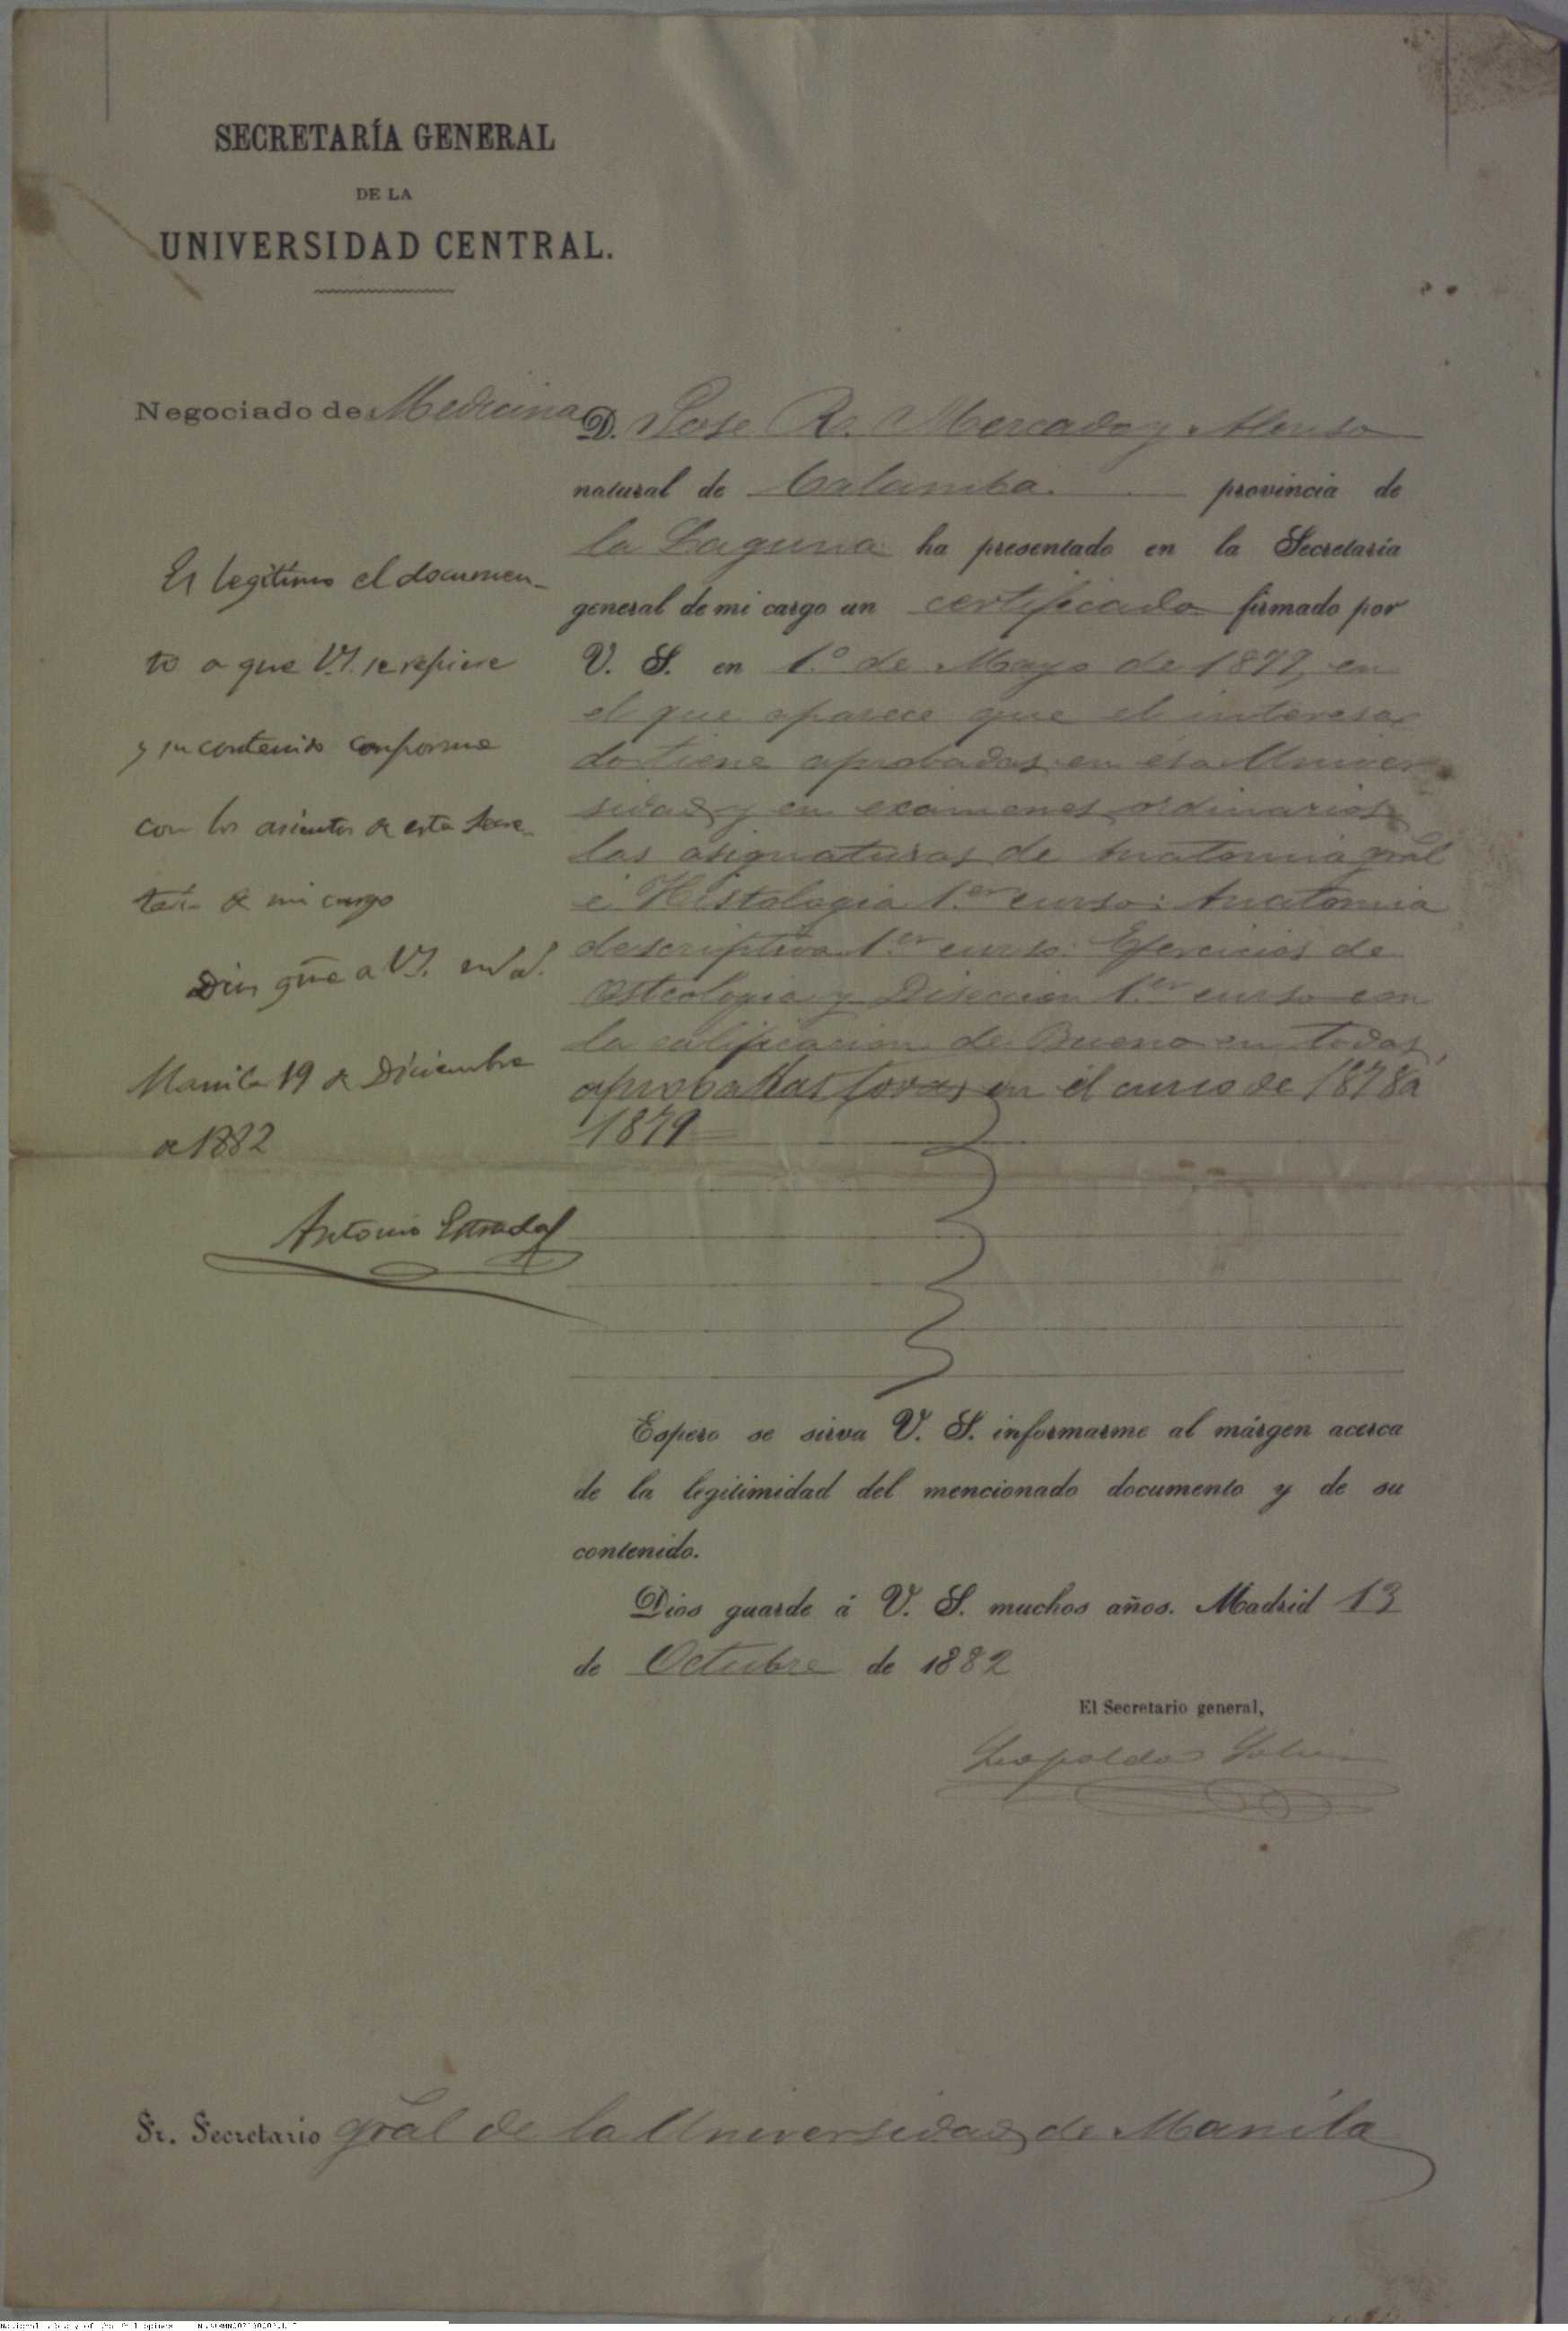 SECRETARÍA GENERAL
DE LA
UNIVERSIDAD CENTRAL.
Negociado de Medicina
Es legitimo el documen-
to a que V.S. se refiere
y su contenido conforme
con los asientos de esta Secre-
taría de mi cargo
Dios gūe a V.S. m.s a.s
Manila 19 de Diciembre
de 1882
Antonio Estrada
D. Jose R. Mercado y Alonso
natural de Calamba. provincia de
la Laguna ha presentado en la Secretaría
general de mi cargo un certificado firmado por
V. S. en 1.º de Mayo de 1877, en
el que aparece que el interesa
do tiene aprobadas en esa Univer
sidad y en examenes ordinarios
las asignaturas de Anatomia gral
é Histologia 1.er curso: Anatomia
descriptiva 1.er curso: Ejercicios de
Osteologia y Diseccion 1.er curso con
la calificacion de Bueno en todas,
aprobadas todas en el curso de 1878 a
1879
Espero se sirva V. S. informarme al márgen acerca
de la legitimidad del mencionado documento y de su
contenido.
Dios guarde á V. S. muchos años. Madrid 13
de Octubre de 1882
El Secretario general,
Leopoldo Solier
Sr. Secretario gral de la Universidad de Manila